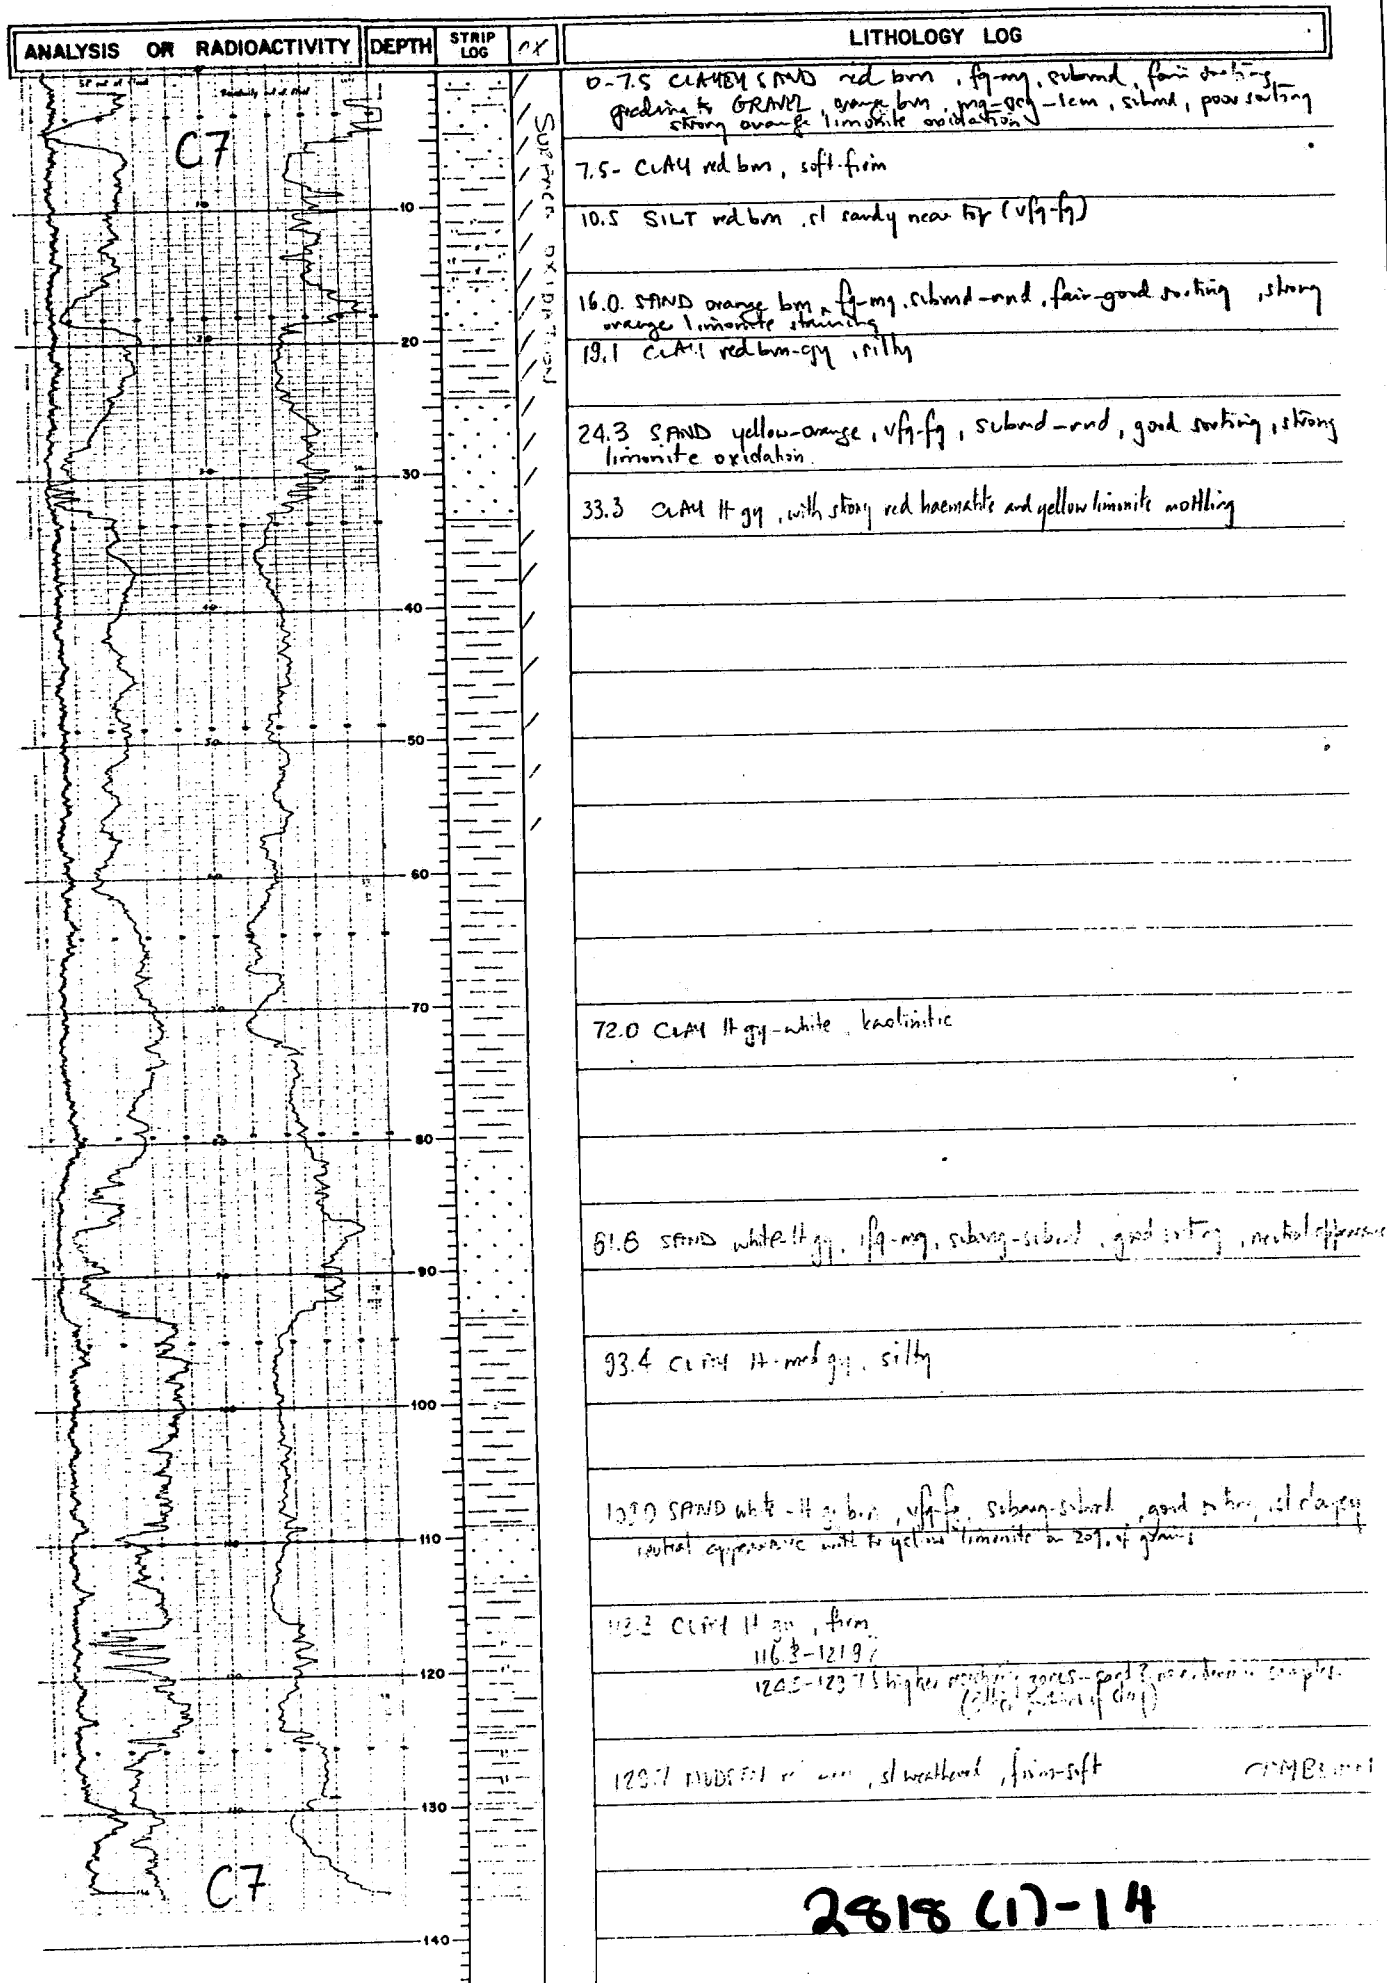 ANALYSIS OR RADIOACTIVITY DEPTH STRIP LOG OX LITHOLOGY LOG
C7
SURFACE OXIDATION
0-7.5 CLAYEY SAND red brn, fg-mg, subrnd, fair sorting,
grading to GRAVEL, orange brn, mg-gcg-1cm, subrnd, poor sorting
strong orange limonite oxidation
7.5- CLAY red brn, soft-firm
10
10.5 SILT red brn, sl sandy near top (vfg-fg)
16.0. SAND orange brn, fg-mg, subrnd-rnd, fair-good sorting, strong
orange limonite staining
20
19.1 CLAY red brn-gy, silty
24.3 SAND yellow-orange, vfg-fg, subrnd-rnd, good sorting, strong
limonite oxidation.
30
33.3 CLAY lt gy, with strong red haematite and yellow limonite mottling
40
50
60
70
72.0 CLAY lt gy-white, kaolinitic
80
81.8 SAND white-lt gy, vfg-mg, subang-subrnd, good sorting, neutral appearance
90
93.4 CLAY lt-med gy, silty
100
109.0 SAND white-lt gy brn, vfg-fg, subang-subrnd, good sorting, sl clayey
110
neutral appearance with tr yellow limonite on 20% of grains
113.3 CLAY lt gy, firm
116.3-121.9
120
higher resistivity zones-sand? no evidence in samples.
sl weathered, firm-soft
130
C7
2818 (1)-14
140